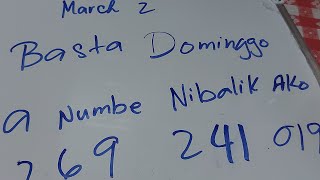 March 2
Basta Dominggo
a Numbe Nibalik Ako
269 241 019